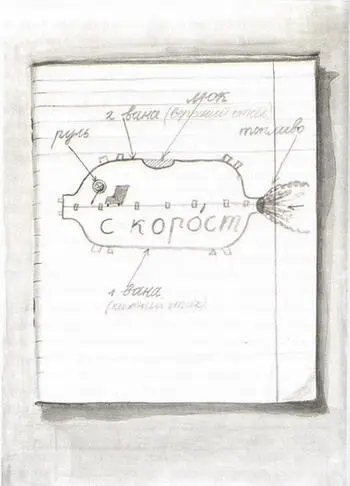 люк
2 вана (верхний этаж)
топливо
руль
с корост
1 вана
(нижний этаж)